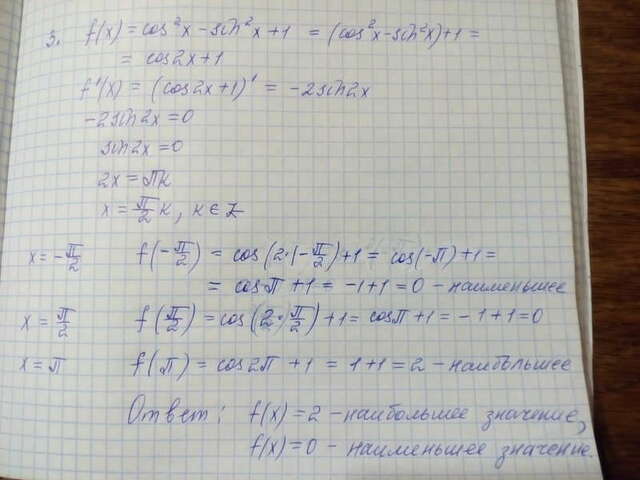 3. f(x) = cos²x - sin²x + 1 = (cos²x - sin²x) + 1 =
= cos2x + 1
f'(x) = (cos2x + 1)' = -2sin2x
-2sin2x = 0
sin2x = 0
2x = πk
x = π/2 k, k ∈ Z
x = -π/2 f(-π/2) = cos(2·(-π/2) + 1 = cos(-π) + 1 =
= cosπ + 1 = -1 + 1 = 0 - наименьшее
x = π/2 f(π/2) = cos(2·π/2) + 1 = cosπ + 1 = -1 + 1 = 0
x = π f(π) = cos2π + 1 = 1 + 1 = 2 - наибольшее
Ответ: f(x) = 2 - наибольшее значение,
f(x) = 0 - наименьшее значение.